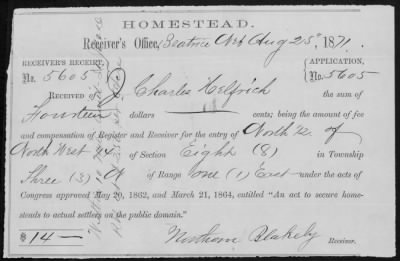 HOMESTEAD.
Receiver's Office, Beatrice Neb Aug 25" 1871.
RECEIVER'S RECEIPT, APPLICATION,
No. 5605 No. 5605
RECEIVED OF Charles Helfrich the sum of
Fourteen dollars cents; being the amount of fee
and compensation of Register and Receiver for the entry of North ½ of
North West ¼ of Section Eight (8) in Township
Three (3) N of Range one (1) East under the acts of
Congress approved May 20, 1862, and March 21, 1864, entitled "An act to secure home-
steads to actual settlers on the public domain."
$14— Nathan Blakely
Receiver.